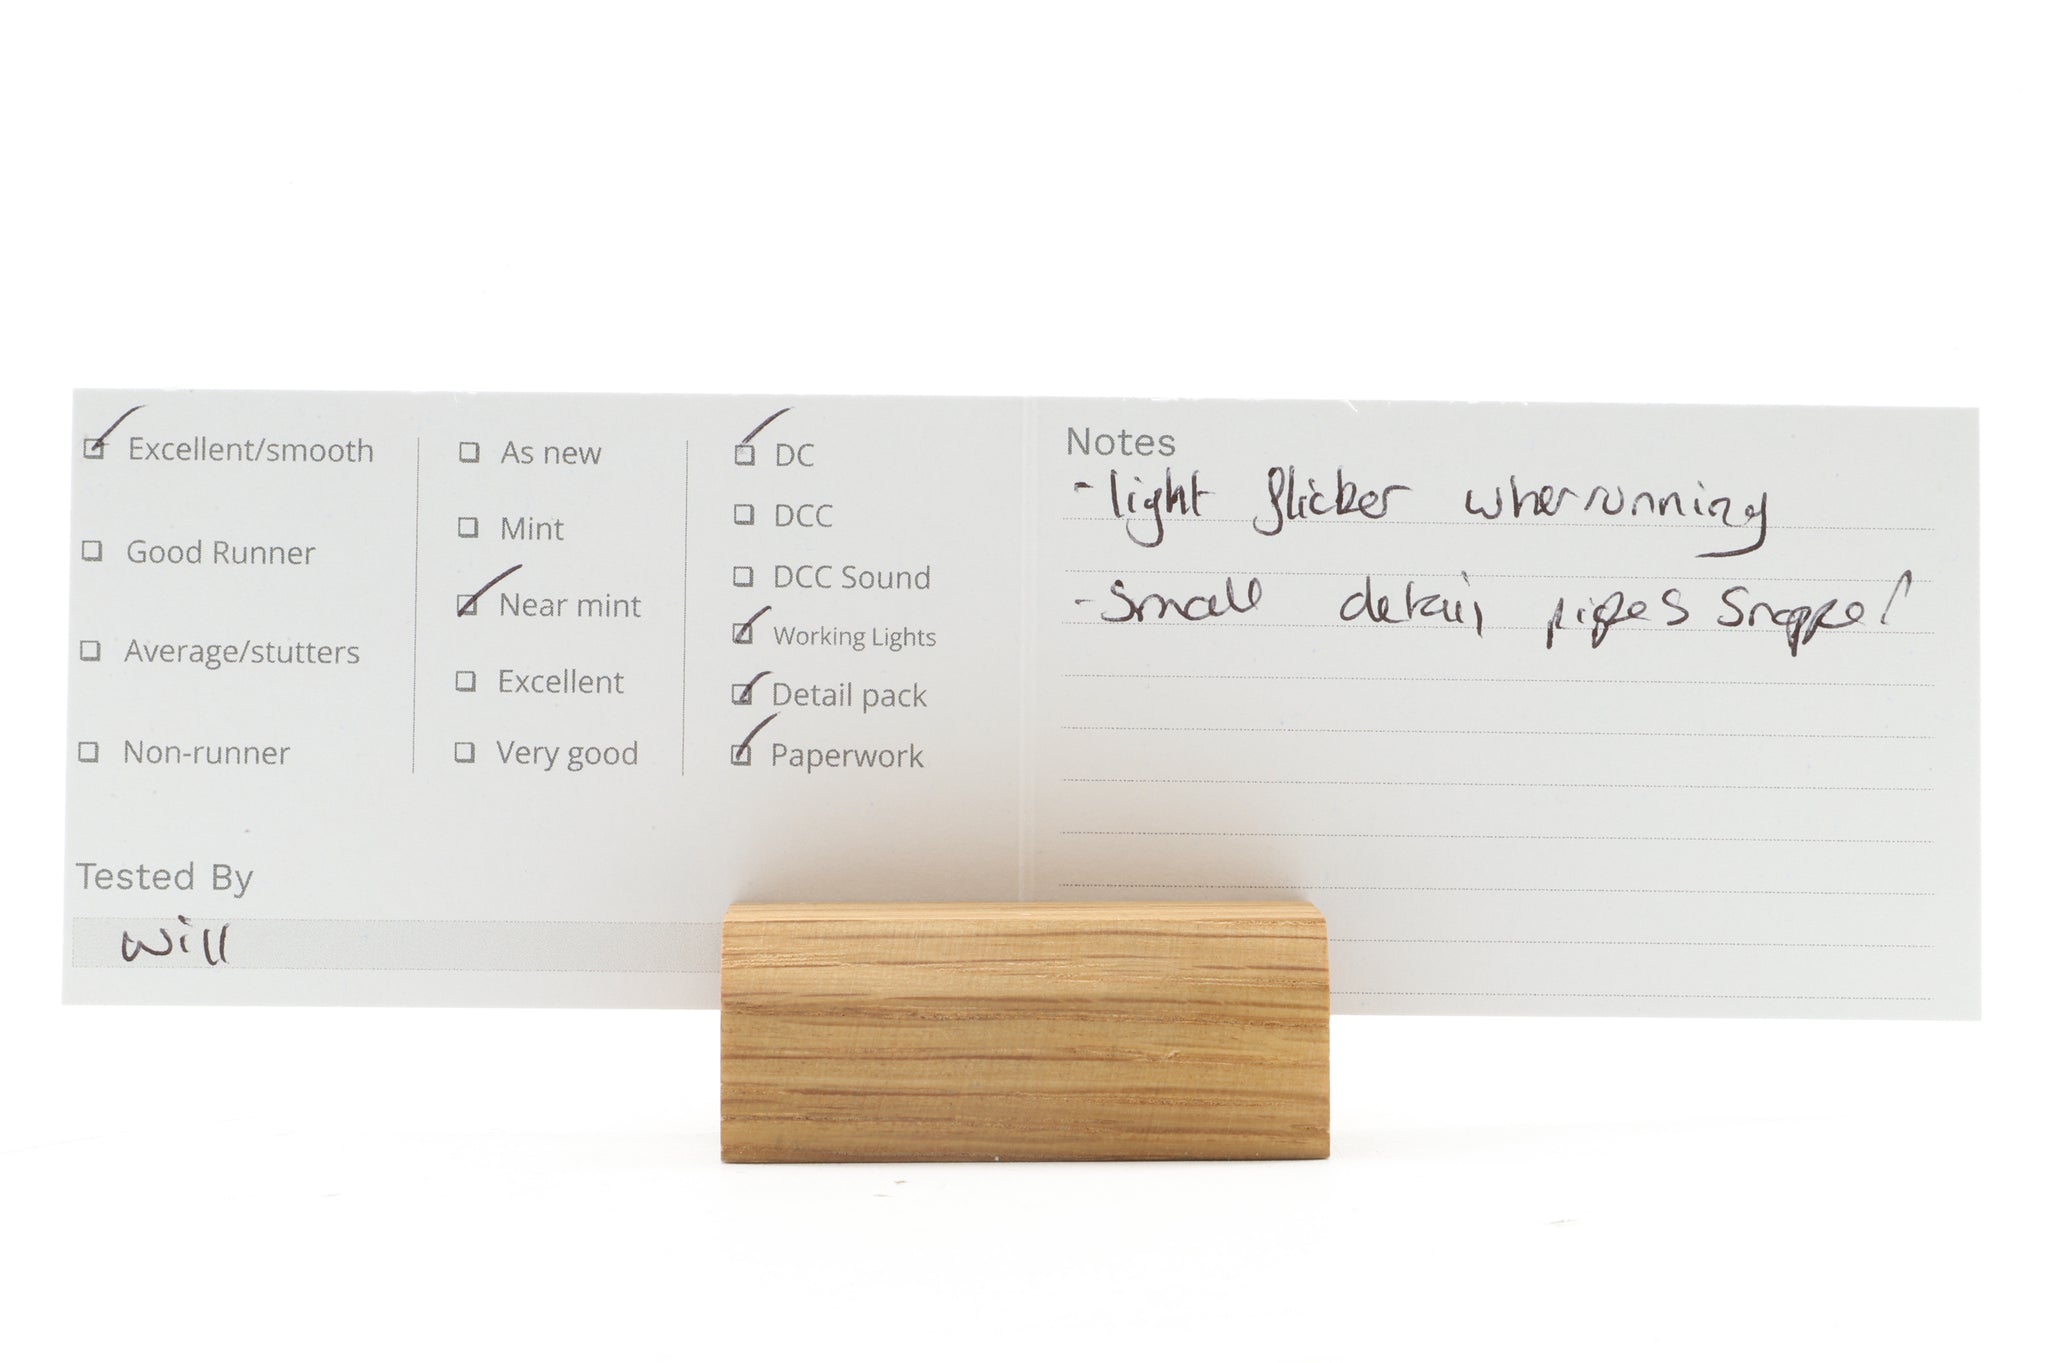 Excellent/smooth
Good Runner
Average/stutters
Non-runner
As new
Mint
Near mint
Excellent
Very good
DC
DCC
DCC Sound
Working Lights
Detail pack
Paperwork
Tested By
Will
Notes
- light flicker when running
- Small detail pipes Snapped